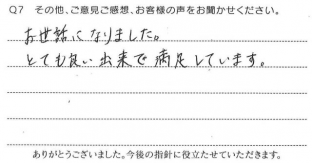 Q7 その他、ご意見ご感想、お客様の声をお聞かせください。
お世話になりました。
とても良い出来で満足しています。
ありがとうございました。今後の指針に役立たせていただきます。